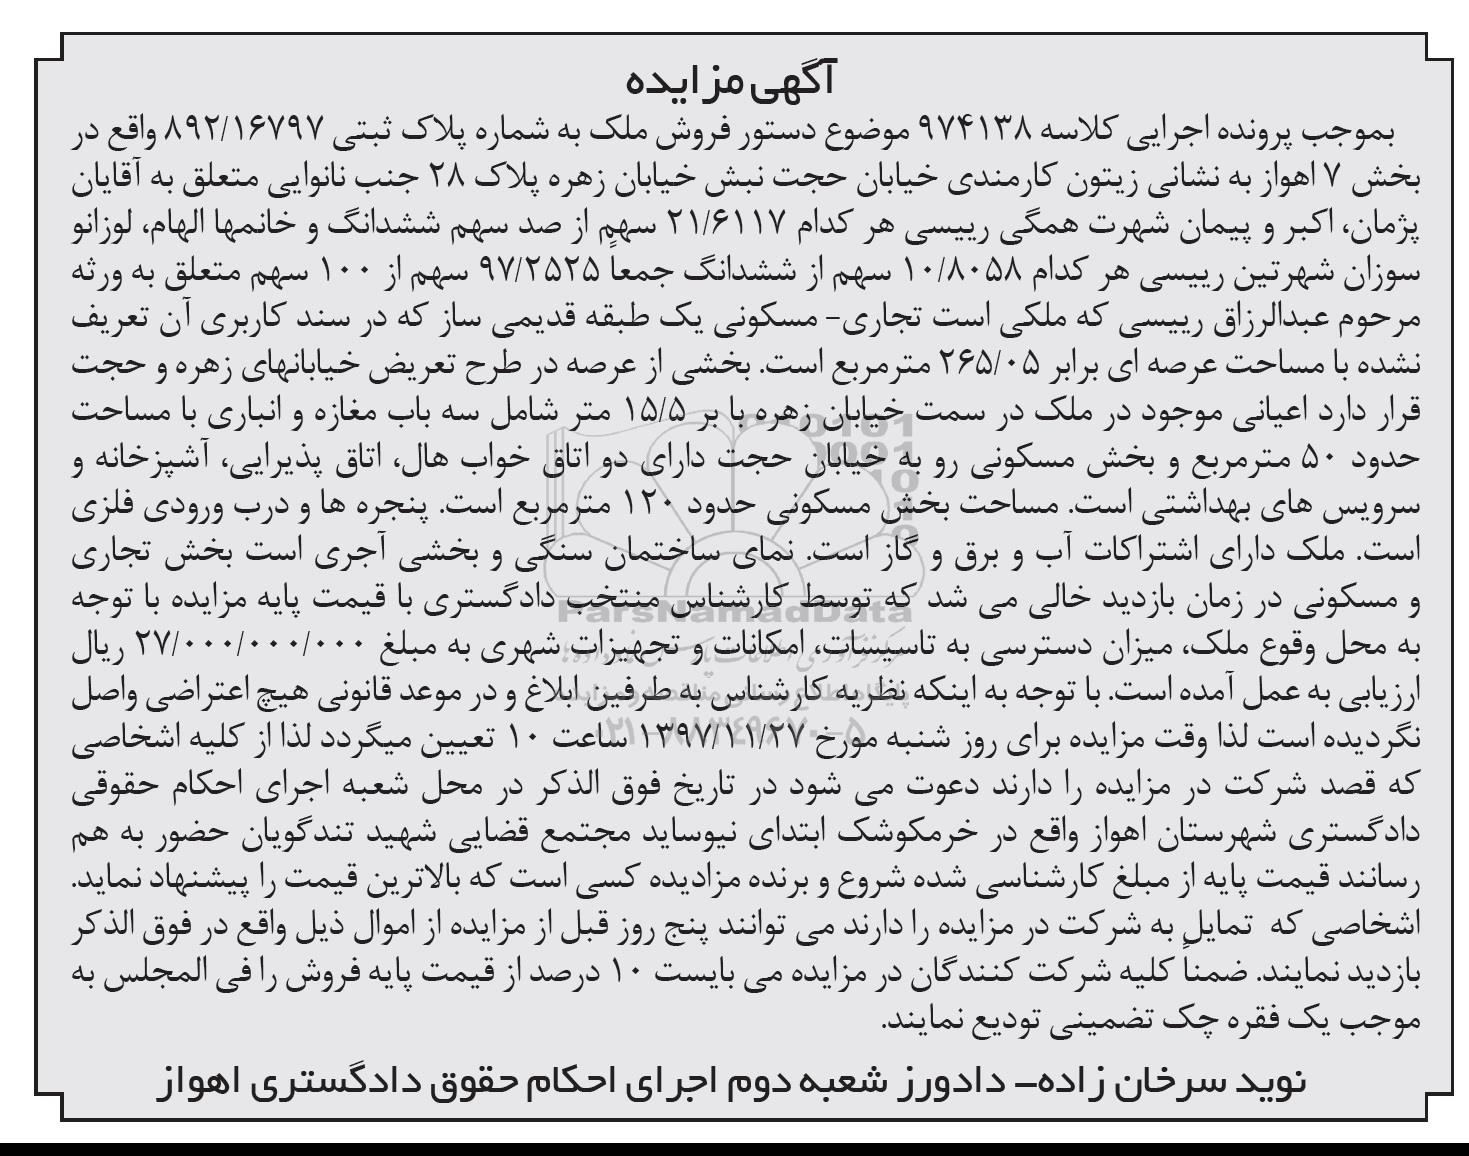 آگهی مزایده
بموجب پرونده اجرایی کلاسه ۹۷۴۱۳۸ موضوع دستور فروش ملک به شماره پلاک ثبتی ۸۹۲/۱۶۷۹۷ واقع در
بخش ۷ اهواز به نشانی زیتون کارمندی خیابان حجت نبش خیابان زهره پلاک ۲۸ جنب نانوایی متعلق به آقایان
پژمان، اکبر و پیمان شهرت همگی رییسی هر کدام ۲۱/۶۱۱۷ سهم از صد سهم ششدانگ و خانمها الهام، لوزانو
سوزان شهرتین رییسی هر کدام ۱۰/۸۰۵۸ سهم از ششدانگ جمعاً ۹۷/۲۵۲۵ سهم از ۱۰۰ سهم متعلق به ورثه
مرحوم عبدالرزاق رییسی که ملکی است تجاری- مسکونی یک طبقه قدیمی ساز که در سند کاربری آن تعریف
نشده با مساحت عرصه ای برابر ۲۶۵/۰۵ مترمربع است. بخشی از عرصه در طرح تعریض خیابانهای زهره و حجت
قرار دارد اعیانی موجود در ملک در سمت خیابان زهره با بر ۱۵/۵ متر شامل سه باب مغازه و انباری با مساحت
حدود ۵۰ مترمربع و بخش مسکونی رو به خیابان حجت دارای دو اتاق خواب هال، اتاق پذیرایی، آشپزخانه و
سرویس های بهداشتی است. مساحت بخش مسکونی حدود ۱۲۰ مترمربع است. پنجره ها و درب ورودی فلزی
است. ملک دارای اشتراکات آب و برق و گاز است. نمای ساختمان سنگی و بخشی آجری است بخش تجاری
و مسکونی در زمان بازدید خالی می شد که توسط کارشناس منتخب دادگستری با قیمت پایه مزایده با توجه
به محل وقوع ملک، میزان دسترسی به تاسیسات، امکانات و تجهیزات شهری به مبلغ ۲۷/۰۰۰/۰۰۰/۰۰۰ ریال
ارزیابی به عمل آمده است. با توجه به اینکه نظریه کارشناس به طرفین ابلاغ و در موعد قانونی هیچ اعتراضی واصل
نگردیده است لذا وقت مزایده برای روز شنبه مورخ ۱۳۹۷/۱۱/۲۷ ساعت ۱۰ تعیین میگردد لذا از کلیه اشخاصی
که قصد شرکت در مزایده را دارند دعوت می شود در تاریخ فوق الذکر در محل شعبه اجرای احکام حقوقی
دادگستری شهرستان اهواز واقع در خرمکوشک ابتدای نیوساید مجتمع قضایی شهید تندگویان حضور به هم
رسانند قیمت پایه از مبلغ کارشناسی شده شروع و برنده مزادیده کسی است که بالاترین قیمت را پیشنهاد نماید.
اشخاصی که تمایل به شرکت در مزایده را دارند می توانند پنج روز قبل از مزایده از اموال ذیل واقع در فوق الذکر
بازدید نمایند. ضمناً کلیه شرکت کنندگان در مزایده می بایست ۱۰ درصد از قیمت پایه فروش را فی المجلس به
موجب یک فقره چک تضمینی تودیع نمایند.
نوید سرخان زاده- دادورز شعبه دوم اجرای احکام حقوق دادگستری اهواز
ParsNamadData
۰۲۱-۸۸۳۴۹۶۷۰-۵